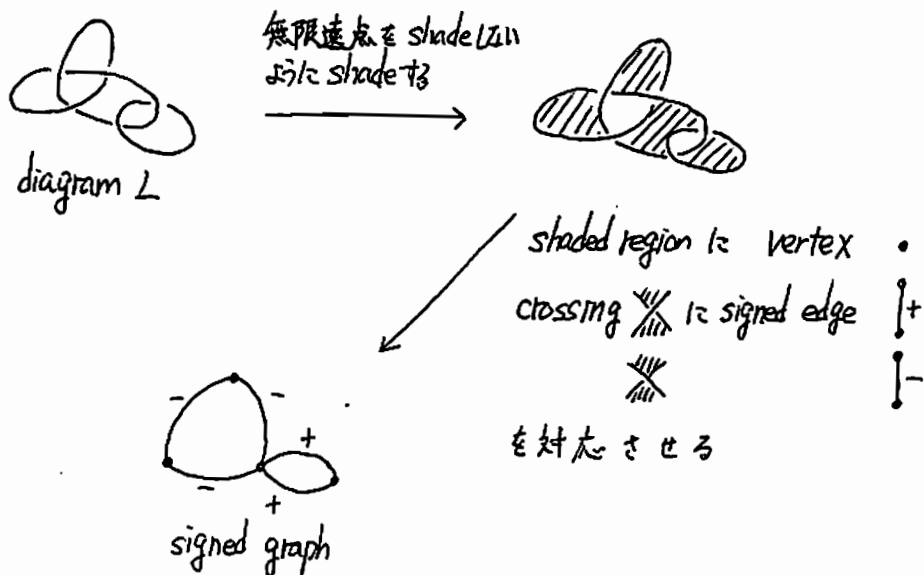 無限遠点を shade しない
ように shade する
diagram L
shaded region に vertex
crossing に signed edge
+
-
を対応させる
-
-
-
+
+
signed graph